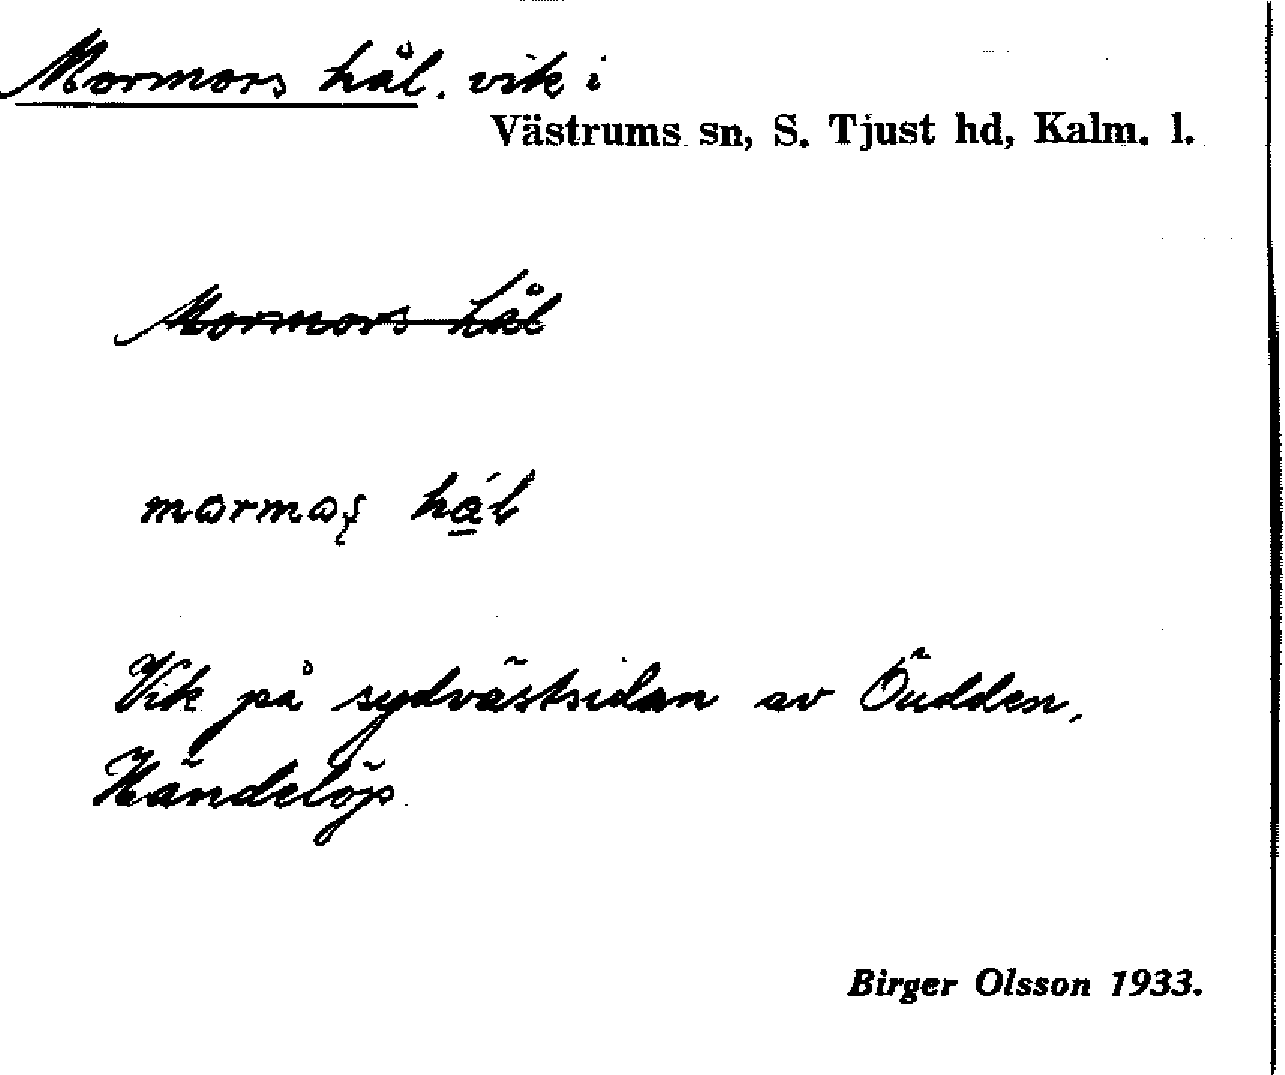 Mormors hål. vik i
Västrums sn, S. Tjust hd, Kalm. l.
Mormors hål
mormoş hál
Vik på sydvästsidan av Öudden,
Händelöp.
Birger Olsson 1933.